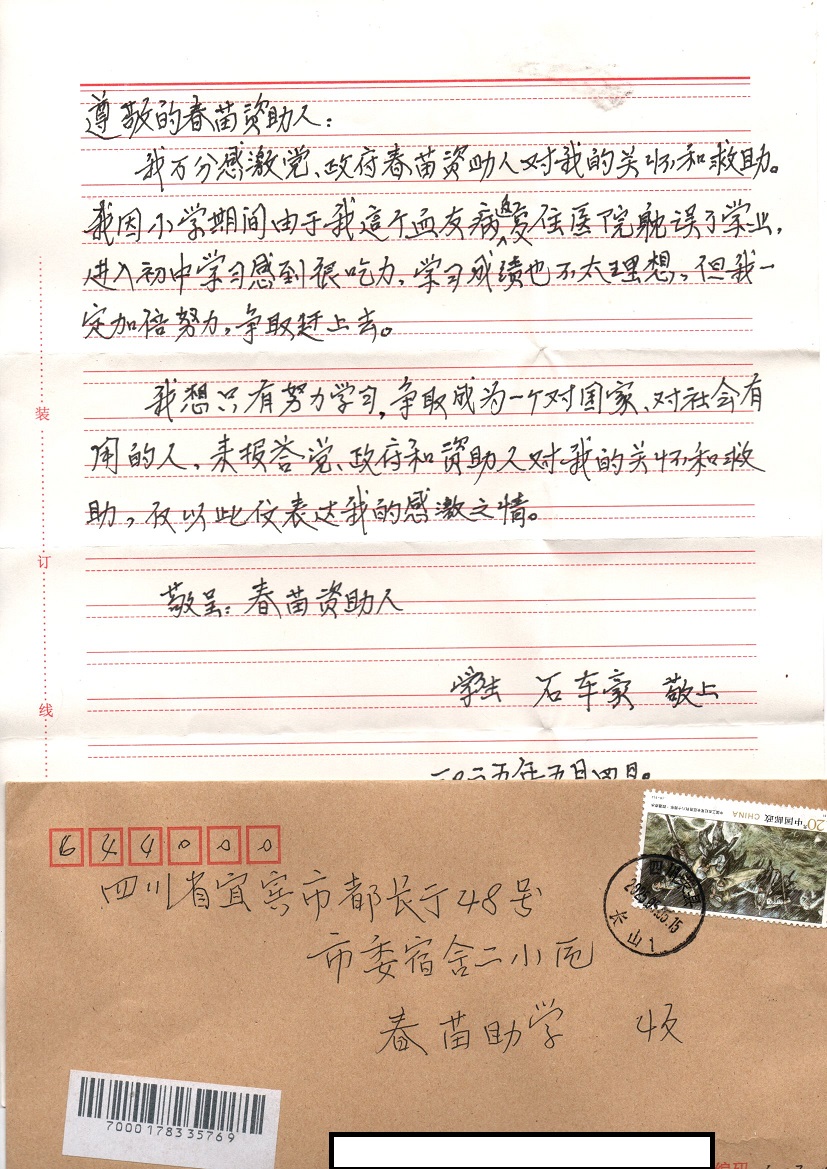 尊敬的春苗资助人：
我万分感激党、政府春苗资助人对我的关怀和救助。
我因小学期间由于我這个血友病经受住医院耽误了学业，
进入初中学习感到很吃力，学习成绩也不太理想，但我一
定加倍努力，争取赶上去。
我想只有努力学习，争取成为一个对国家、对社会有
用的人，来报答党、政府和资助人对我的关怀和救
助，仅以此仅表达我的感激之情。
敬呈：春苗资助人
学生 石车豪 敬上
二〇二五年五月四日。
装
订
线
644000
四川省宜宾市都长厅48号
市委宿舍二小区
春苗助学 收
20分 中国邮政 CHINA
2025.05.15
7000178335769